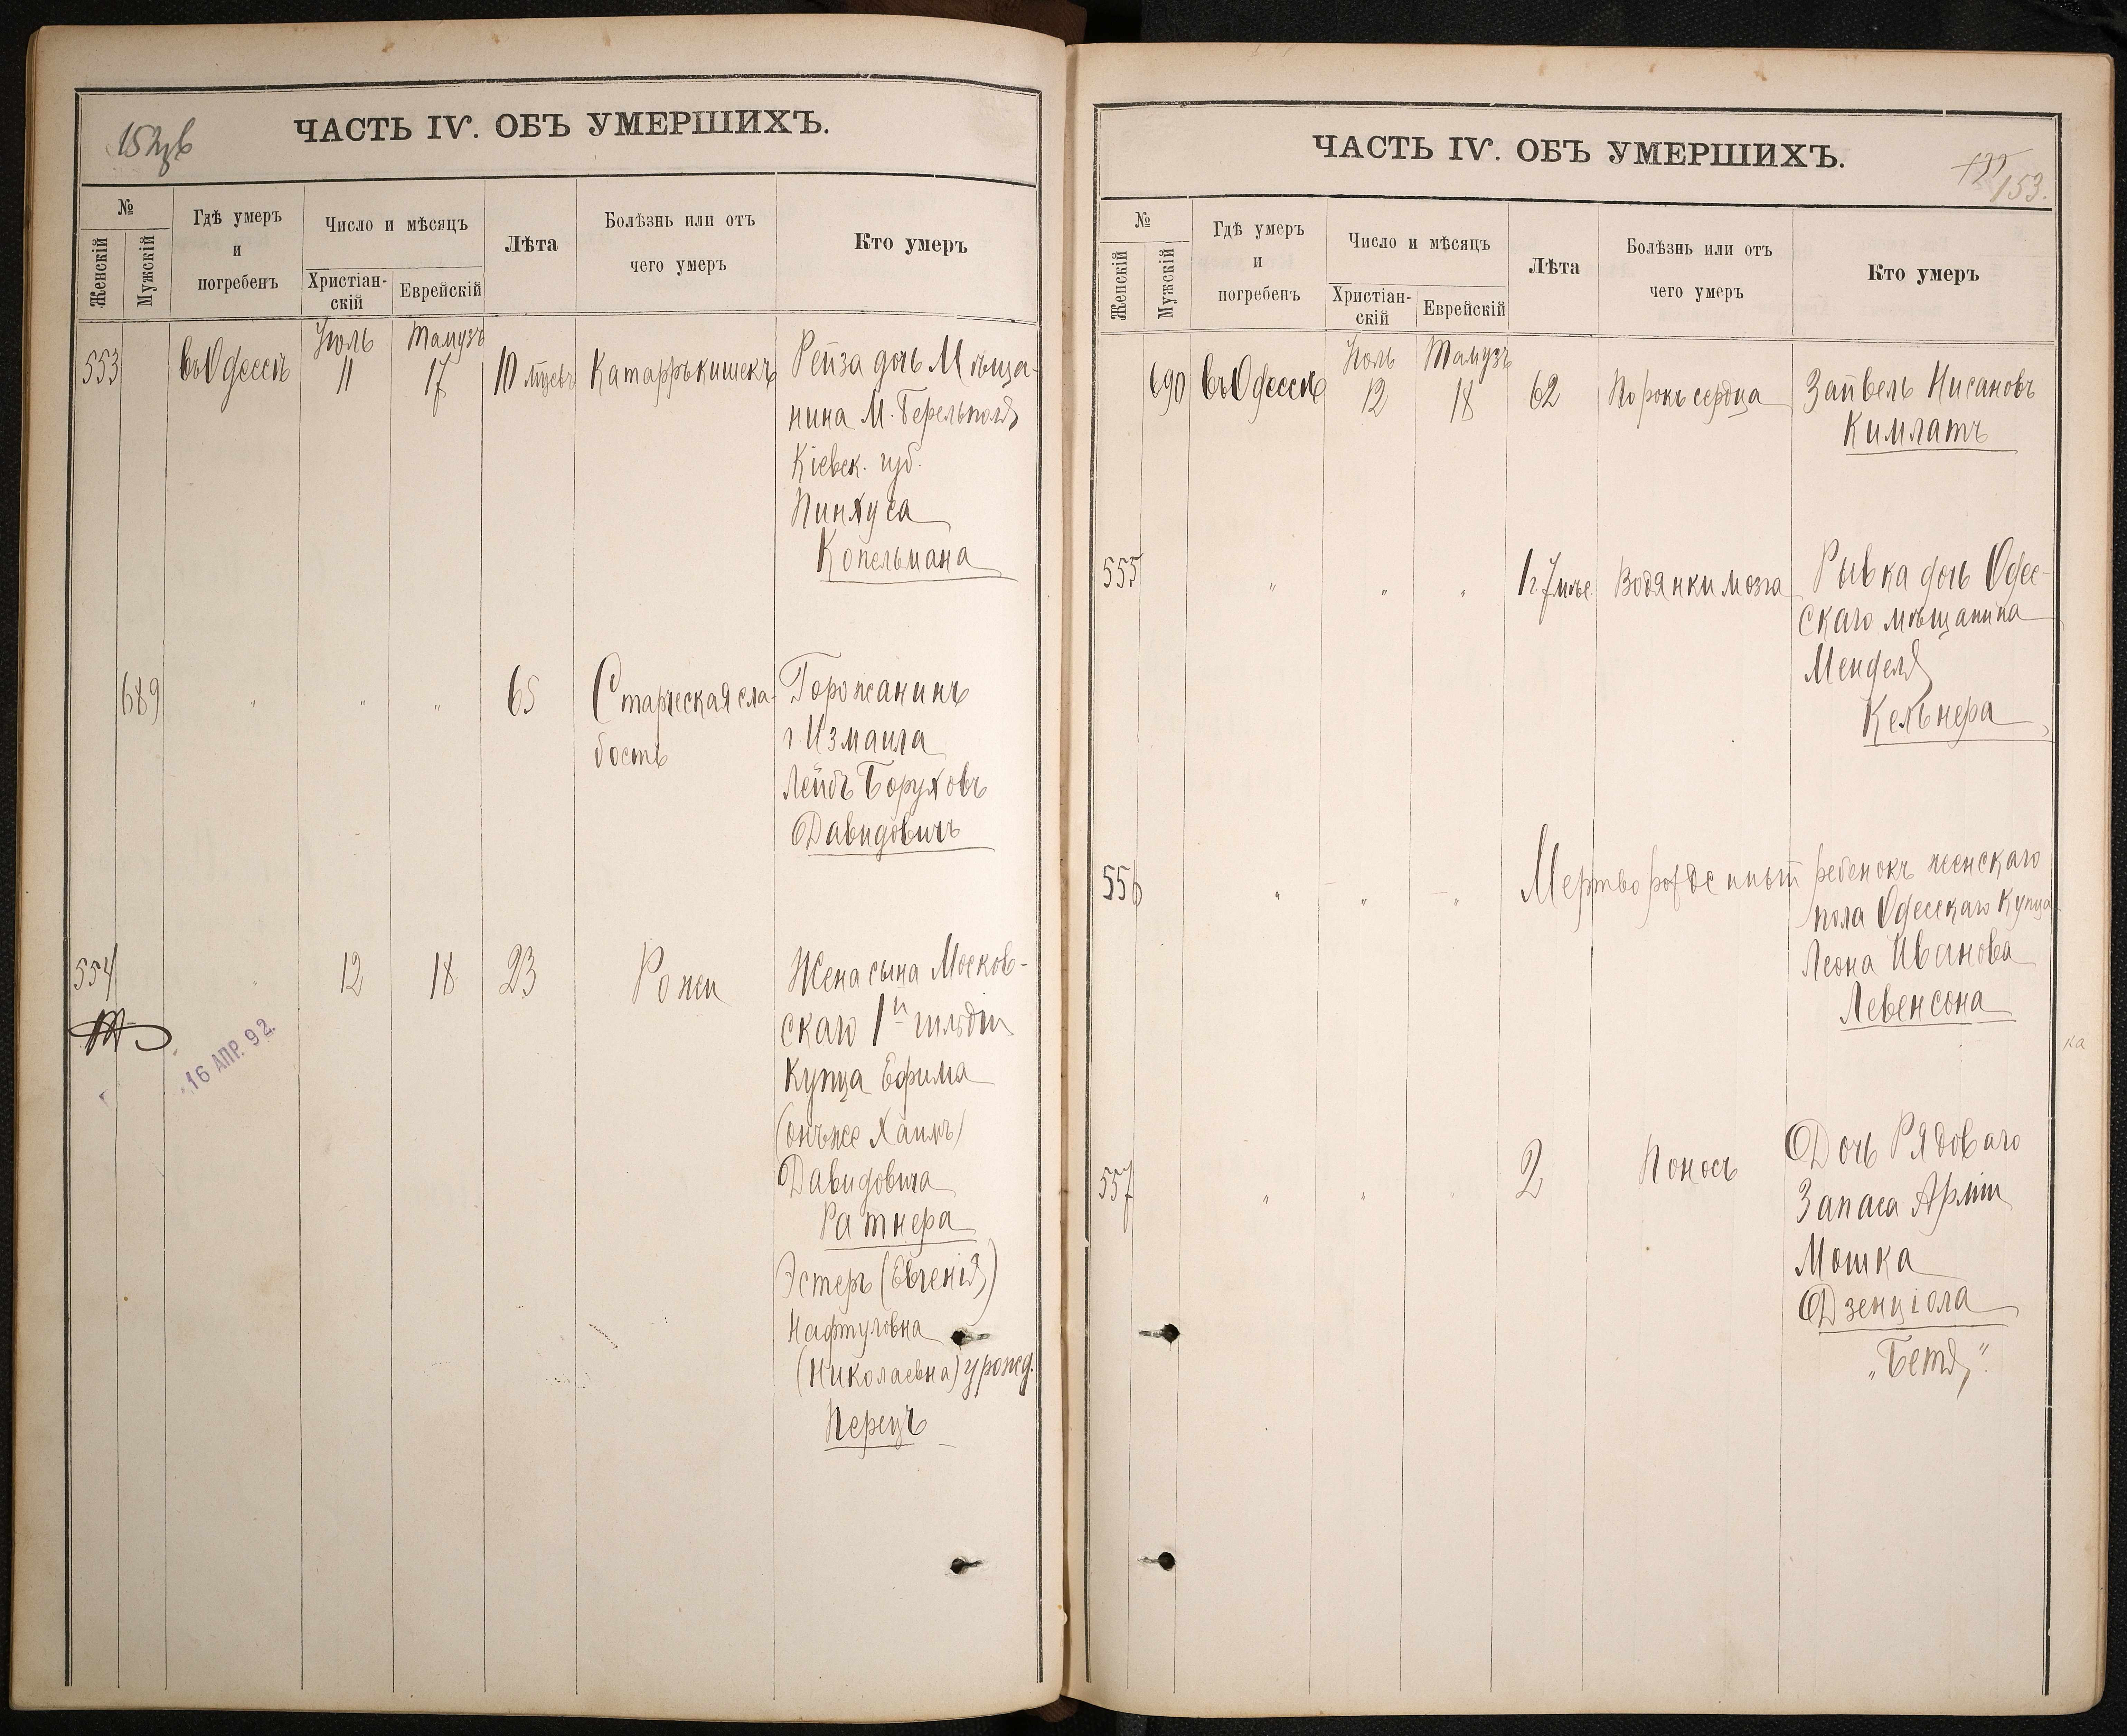 152об
ЧАСТЬ IV. ОБЪ УМЕРШИХЪ.
№
Женскій
Мужскій
Гдѣ умеръ
и
погребенъ
Число и мѣсяцъ
Христіан-
скій
Еврейскій
Лѣта
Болѣзнь или отъ
чего умеръ
Кто умеръ
Іюль Тамузъ
553 въ Одессѣ 11 17 10 мцевъ Катарръ кишекъ Рейза дочь Мѣща-
нина М.
Кіевск. губ.
Пинхуса
Копельмана
689 " " " 65 Старческая сла- Горожанинъ
бость г. Измаила
Лейбъ Боруховъ
Давидовичъ
554 " 12 18 23 Рожи Жена сына Москов-
скаго 1й гильдіи
Купца Ефима
(онъже Хаимъ)
Давидовича
Ратнера
Эстеръ (Евгенія)
Нафтуловна
(Николаевна) урожд.
Перецъ
16 АПР. 92.
ЧАСТЬ IV. ОБЪ УМЕРШИХЪ.
153.
№
Женскій
Мужскій
Гдѣ умеръ
и
погребенъ
Число и мѣсяцъ
Христіан-
скій
Еврейскій
Лѣта
Болѣзнь или отъ
чего умеръ
Кто умеръ
Іюль Тамузъ
690 въ Одессѣ 12 18 62 Порокъ сердца Зайвель Нисановъ
Кимлатъ
555 " " " 1 г. 7 мѣс. Водянки мозга Рывка дочь Одес-
скаго мѣщанина
Менделя
Кельнера
556 " " " Мертворожденный ребенокъ женскаго
пола Одесскаго Купца
Леона Иванова
Левенсона
ка
557 " " " 2 Поносъ Дочь Рядоваго
Запаса Арміи
Мошка
Дзенціола
„Бетя“